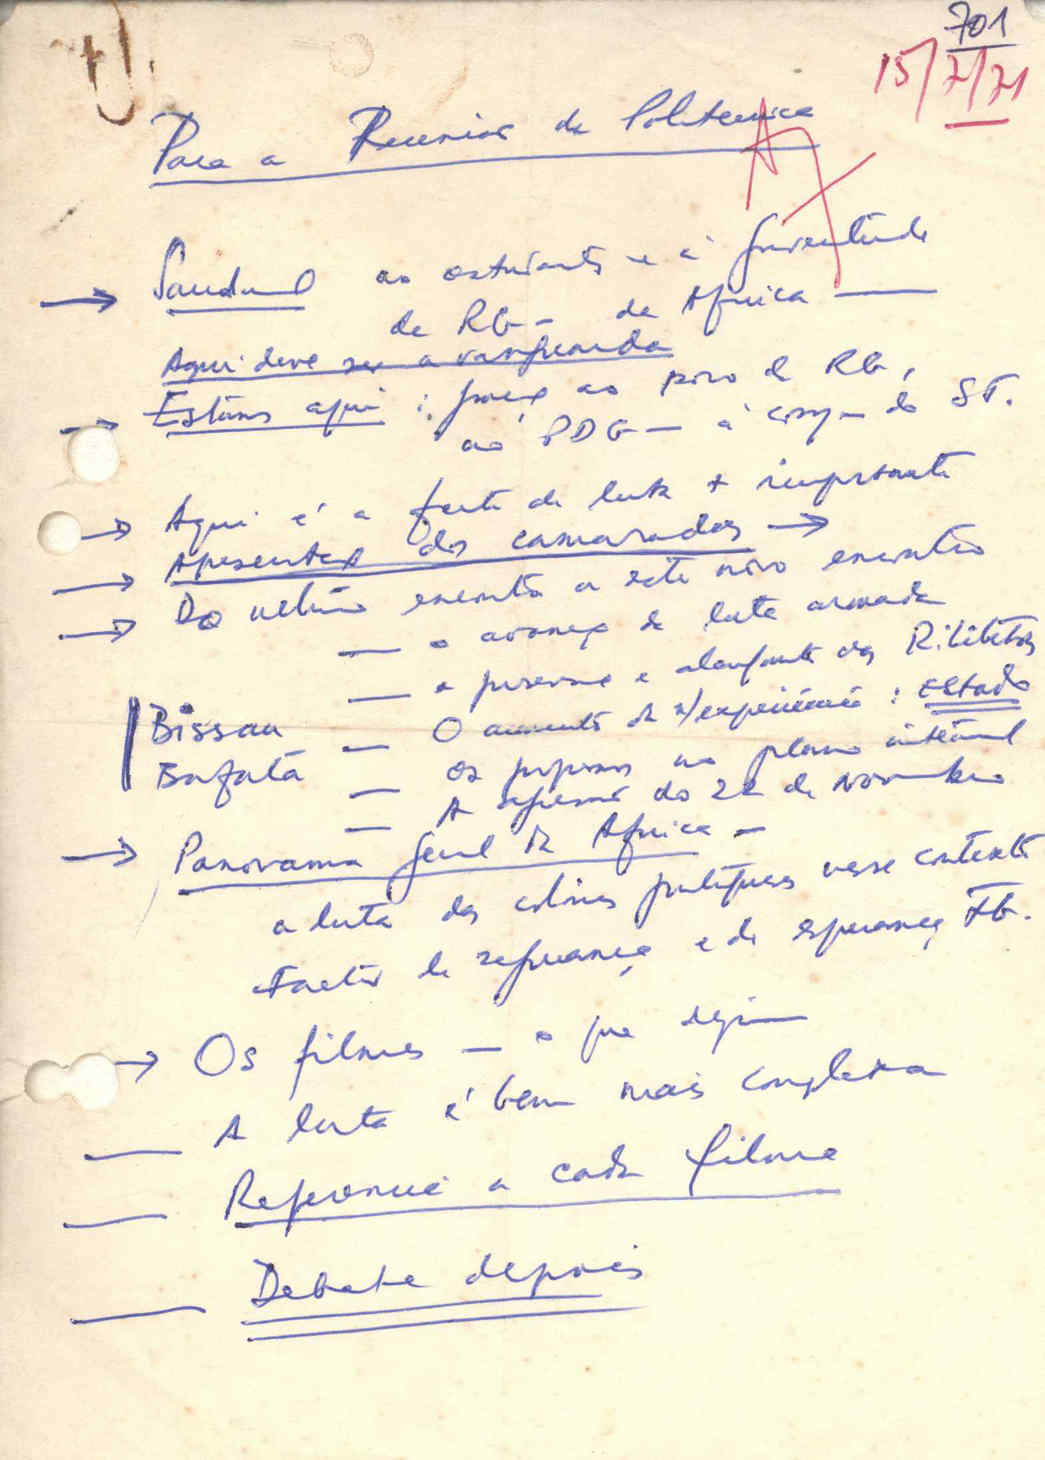 701
15/7/71
Para a Reunião da Politécnica
→ Saudação aos estudantes e à juventude
da RG — da Africa —
Aqui deve ser a vanguarda
→ Estamos aqui : graças ao povo da RG,
ao PDG — à do ST.
→ Aqui é a frente de luta + importante
→ Apresentar os camaradas →
→ Do ultimo encontro a este novo encontro
— o avanço da luta armada
— a e das R. Libertadas
Bissau — O aumento da n/experiência : estado
Bafatá — os progressos no plano
— A agressão do 22 de Novembro
→ Panorama Geral da Africa —
a luta das colónias portuguesas nesse contexto
Factor de segurança e de esperança
→ Os filmes — o que
— A luta é bem mais complexa
— Referencia a cada filme
— Debate depois